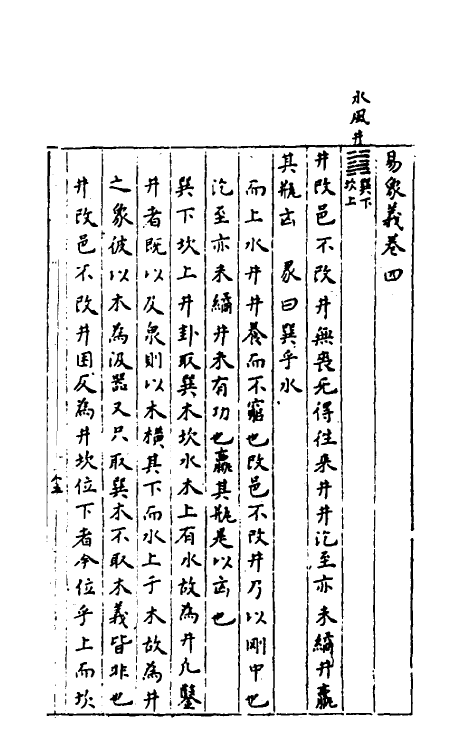 易象義卷四
水風井䷯巽下坎上
井改邑不改井無喪无得往來井井汔至亦未繘井羸
其瓶凶　彖曰巽乎水
而上水井井養而不窮也改邑不改井乃以剛中也
汔至亦未繘井未有功也羸其瓶是以凶也
巽下坎上井卦取巽木坎水木上有水故為井凡鑿
井者既以及泉則以木橫其下而水上于木故為井
之象彼以木為汲器又只取巽木不取木義皆非也
井改邑不改井困反為井坎位下者今位乎上而坎